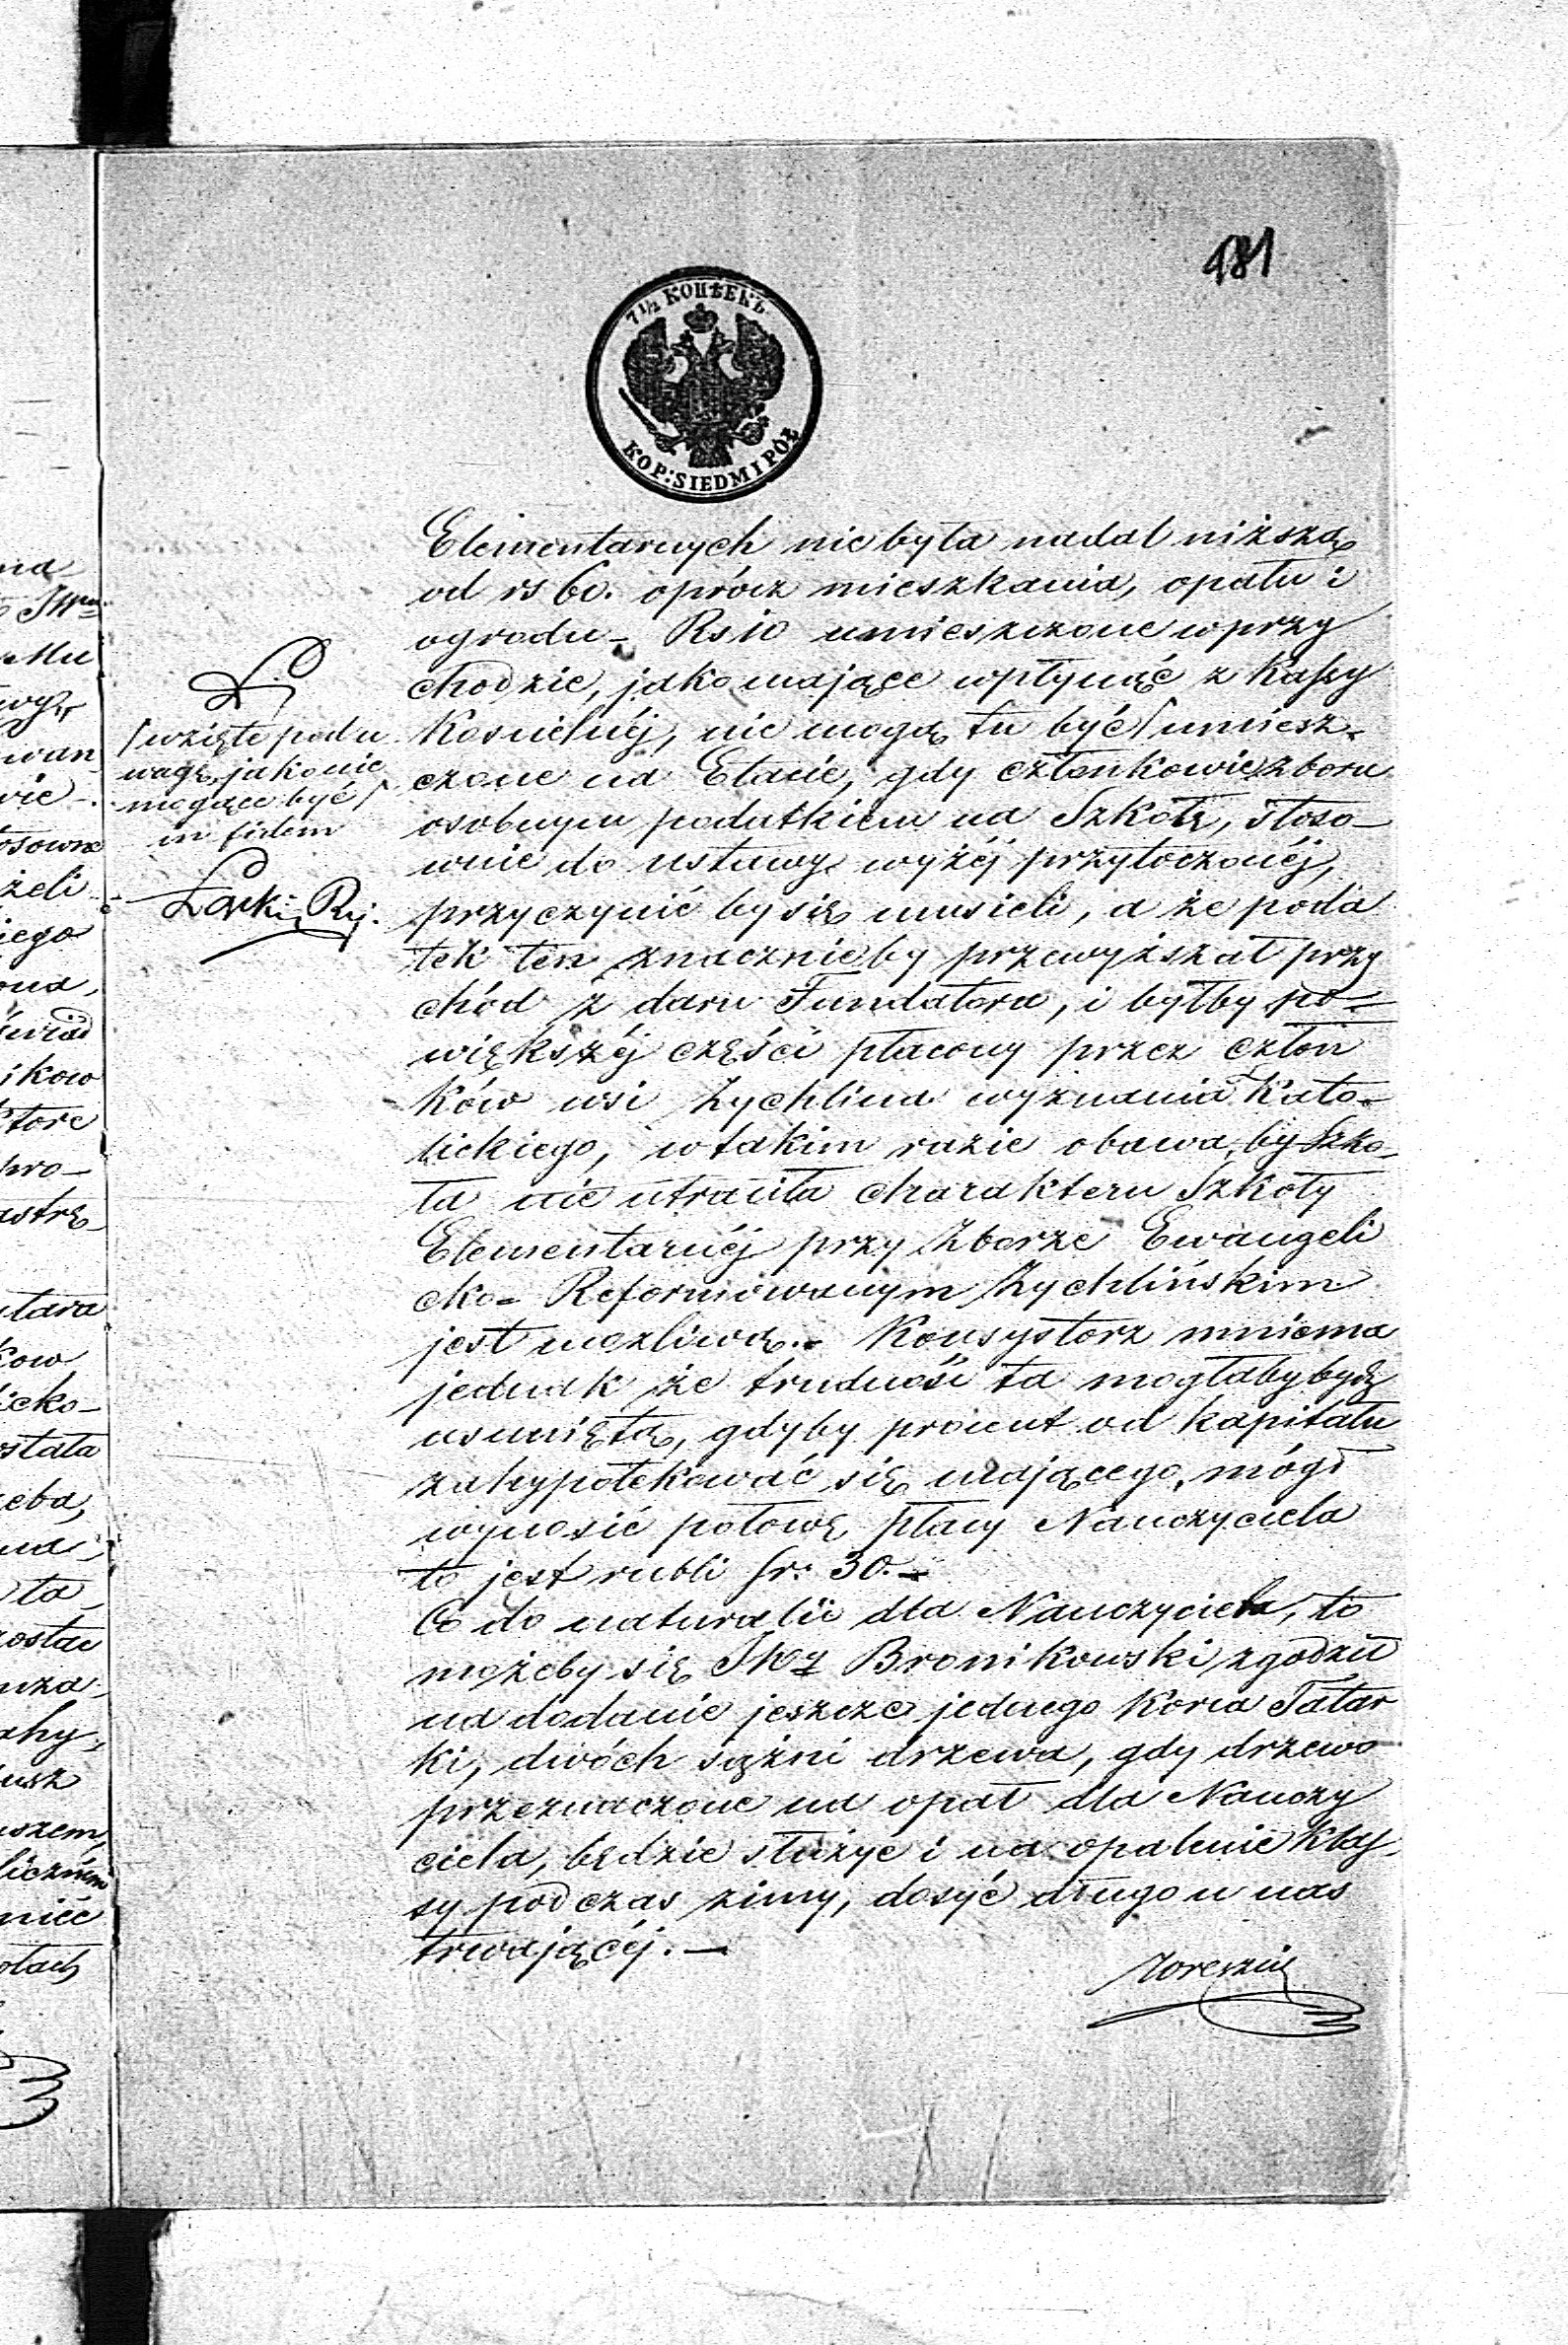 181
7 1/2 КОПѢЕКЪ
KOP: SIEDM I PÓŁ
Elementarnych nie była nadal niższą
od rs 60. oprócz mieszkania, opału i
ogrodu – Rs 10 umieszczone w przy
chodzie, jako mające wpłynąć z Kassy
Kościelnéj, nie mogą tu być / umiesz-
czone na Etacie, gdy członkowie zboru
osobnym podatkiem na Szkołę, stoso-
wnie do ustawy wyżéj przytoczonéj,
przyczynić by się musieli, a że poda
tek ten znacznie by przewyższał przy
chód z daru Fundatora, i byłby po
większéj części płacony przez człon
ków wsi Żychlina wyznania Kato-
lickiego, w takim razie obawa, by Szko-
ła nie utraciła charakteru Szkoły
Elementarnéj przy Zborze Ewangeli
cko-Reformowanym Żychlińskim
jest możliwą. – Konsystorz mniema
jednak że trudność ta mogłaby bydź
usuniętą, gdyby procent od kapitału
zahypotekować się mającego, mógł
wynosić połowę płacy Nauczyciela
to jest rubli sr. 30. –
Co do naturalii dla Nauczyciela, to
możeby się JWy Bronikowski zgodził
na dodanie jeszcze jednego Korca Tatar
ki, dwóch sążni drzewa, gdy drzewo
przeznaczone na opał dla Nauczy
ciela, będzie służyć i na opalenie klas-
sy podczas zimy, dosyć długo u nas
trwającéj. –
/ wzięte pod u
wagę, jako nie
mogące być /
in fidem